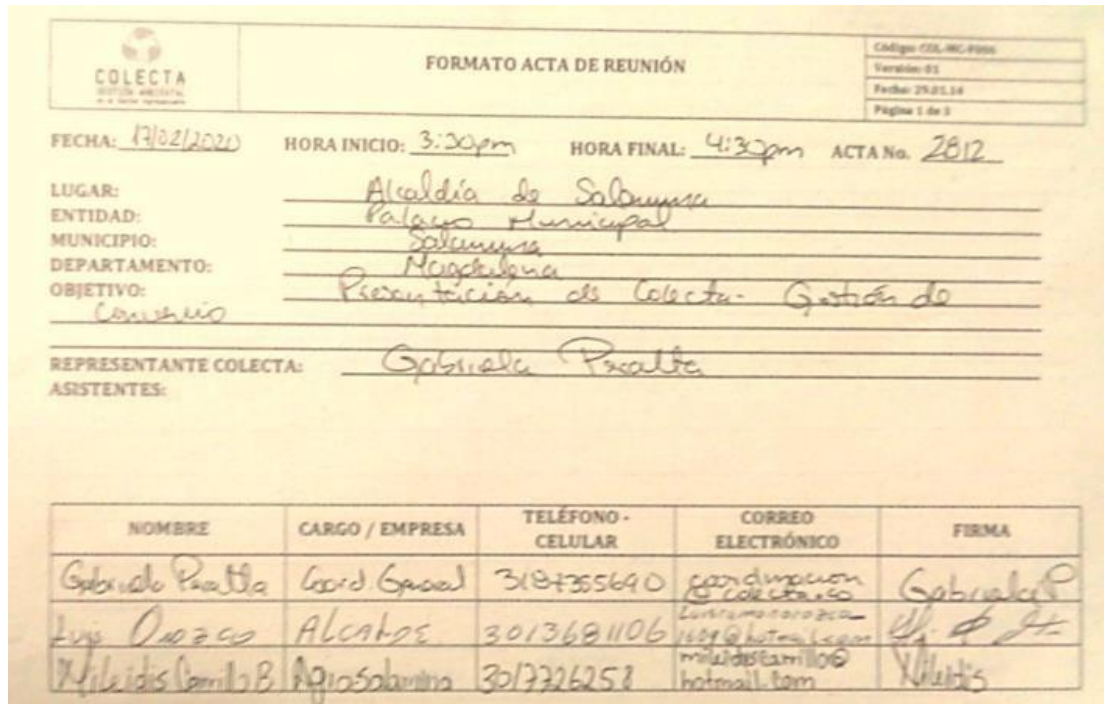 COLECTA
GESTIÓN AMBIENTAL
FORMATO ACTA DE REUNIÓN
Código: COL-MC-F006
Versión: 01
Fecha: 29.01.14
Página 1 de 3
FECHA: 17/02/2020 HORA INICIO: 3:30pm HORA FINAL: 4:30pm ACTA No. 2812
LUGAR: Alcaldía de Salamina
ENTIDAD: Palacio Municipal
MUNICIPIO: Salamina
DEPARTAMENTO: Magdalena
OBJETIVO: Presentación de Colecta - Gestión de
Convenio
REPRESENTANTE COLECTA: Gabriela Peralta
ASISTENTES:
NOMBRE CARGO / EMPRESA TELÉFONO - CELULAR CORREO ELECTRÓNICO FIRMA
Gabriela Peralta Coord. General 3187355690 coordinacion @colecta.co Gabriela P
Luis Orozco ALCALDE 3013681106 @hotmail.com
Mileidis Camillo B Agrosalamina 3017726258 mileidiscamillo@ hotmail.com Mileidis